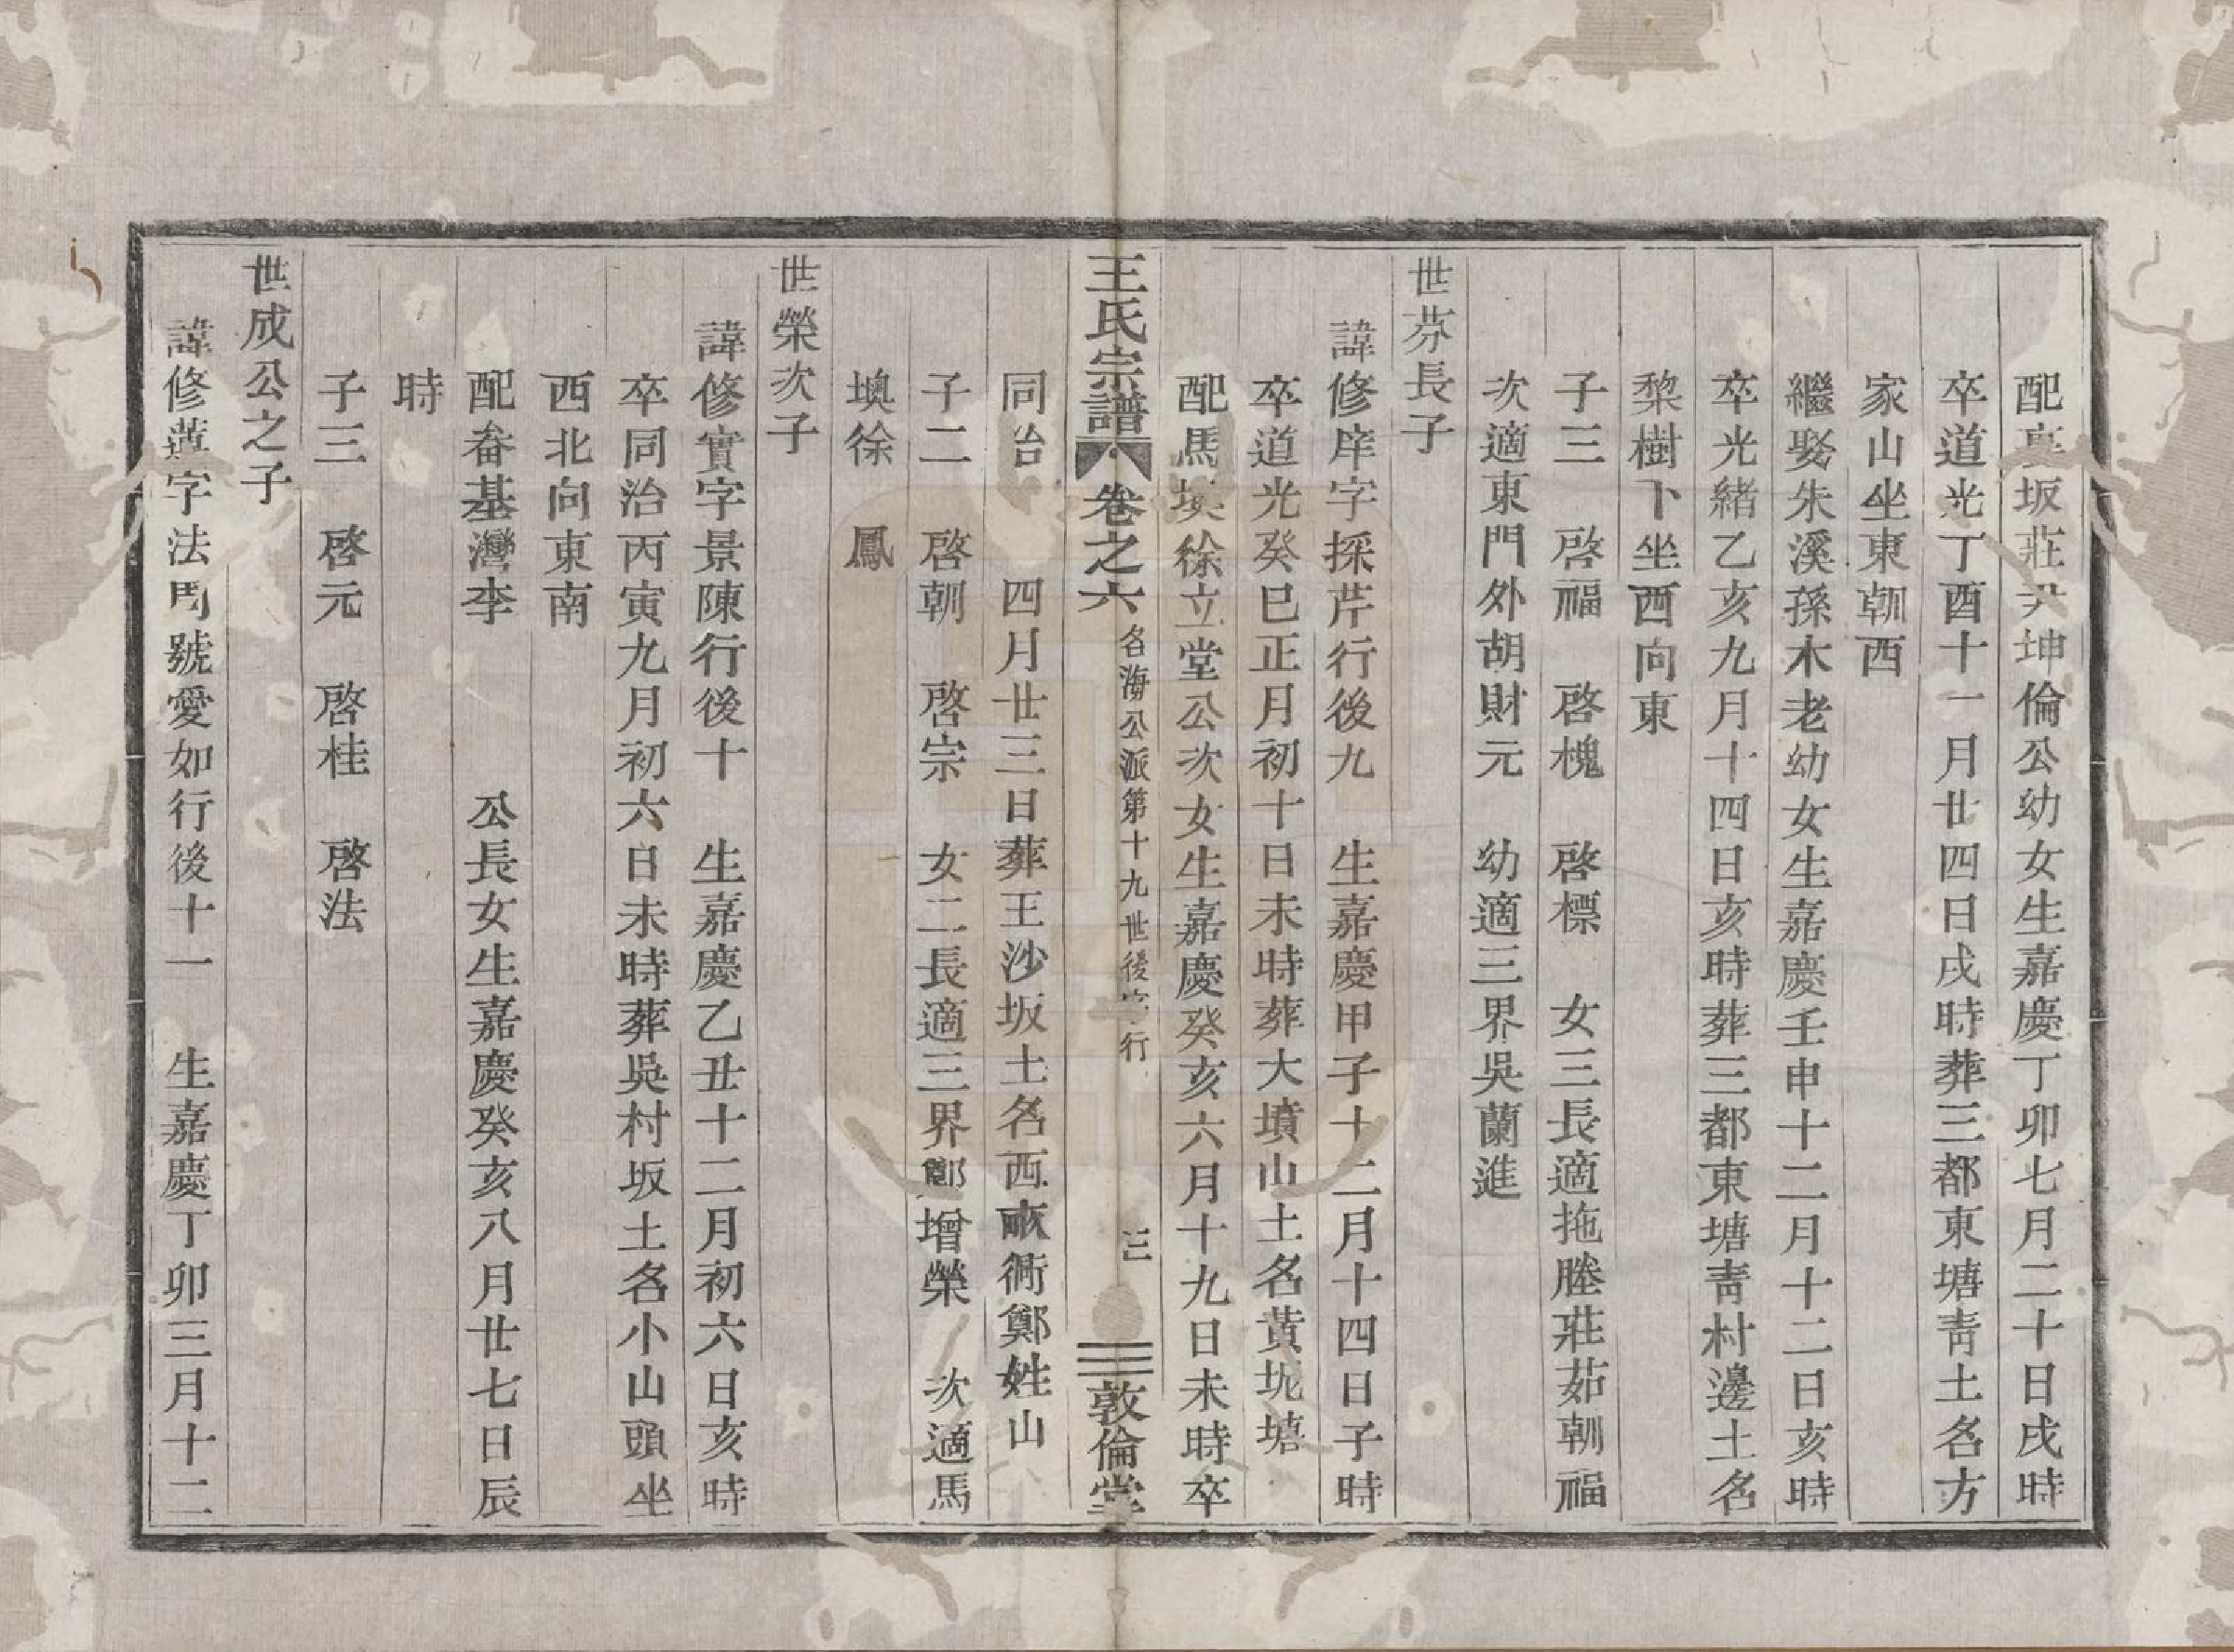 配裏坂莊尹坤倫公幼女生嘉慶丁卯七月二十日戌時
卒道光丁酉十一月廿四日戌時葬三都東塘靑土名方
家山坐東朝西
繼娶朱溪孫木老幼女生嘉慶壬申十二月十二日亥時
卒光緒乙亥九月十四日亥時葬三都東塘靑村邊土名
棃樹下坐西向東
子三　啓福　啓槐　啓標　女三長適拖塍莊茹朝福
次適東門外胡財元　幼適三界吳蘭進
世芬長子
諱修庠字採芹行後九　生嘉慶甲子十二月十四日子時
卒道光癸巳正月初十日未時葬大墳山土名黃坭塘
配馬墺徐立堂公次女生嘉慶癸亥六月十九日未時卒
王氏宗譜　卷之六　名海公派第十九世後字行　三　敦倫堂
同治　四月廿三日葬王沙坂土名西畝衕鄭姓山
子二　啓朝　啓宗　女二長適三界鄭增榮　次適馬
墺徐　鳳
世榮次子
諱修實字景陳行後十　生嘉慶乙丑十二月初六日亥時
卒同治丙寅九月初六日未時葬吳村坂土名小山頭坐
西北向東南
配畚基灣李　公長女生嘉慶癸亥八月廿七日辰
時
子三　啓元　啓桂　啓法
世成公之子
諱修字法周號愛如行後十一　生嘉慶丁卯三月十二